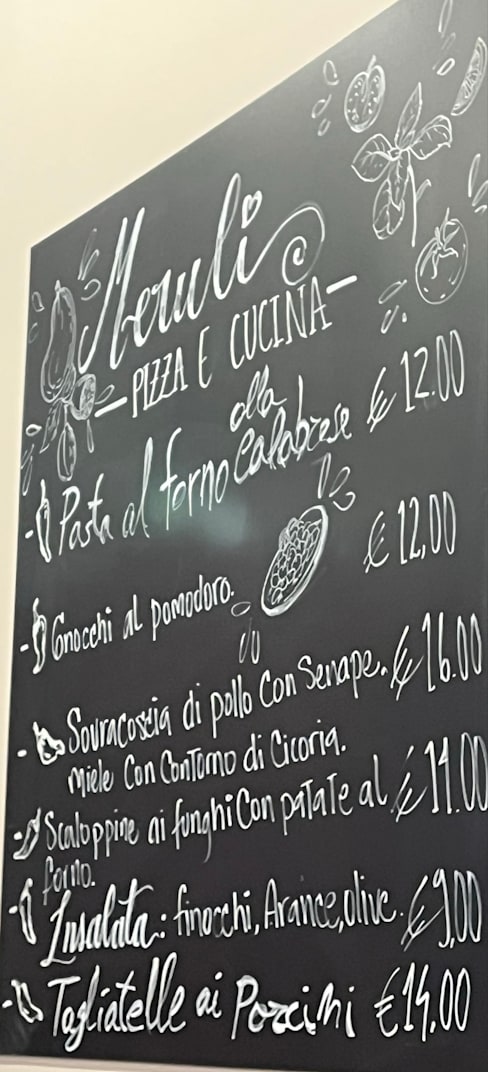 Meruli
- PIZZA E CUCINA -
- Pasta al forno alla Calabrese € 12.00
- Gnocchi al pomodoro. € 12,00
- Souracoscia di pollo Con Senape. € 16.00
miele Con Contorno di Cicoria.
- Scaloppine ai funghi Con patate al € 14.00
forno.
- Insalata: finocchi, Arance, olive. € 9,00
- Tagliatelle ai Porcini € 14,00